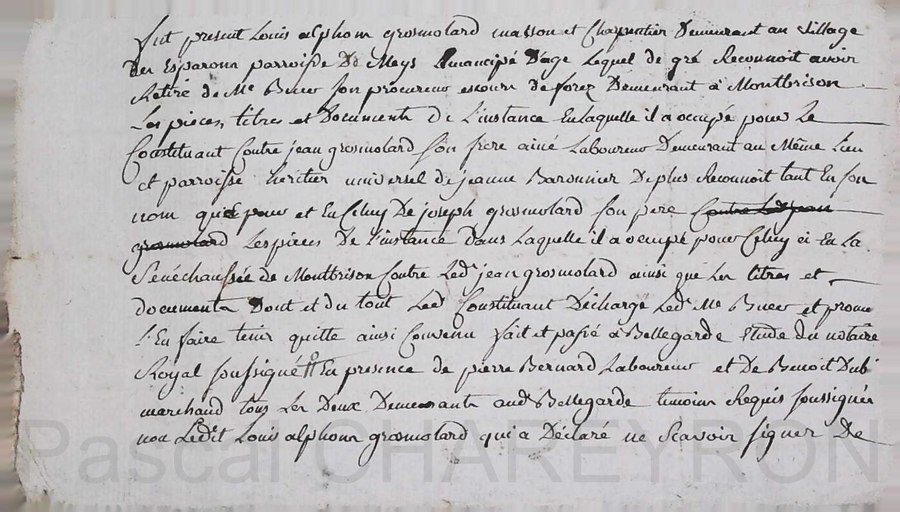 fut present Louis alphom grosmolard masson et Charpentier Demeurant au Village
Des Esparom parroisse De Meys Emancipé D'age Lequel de gré Reconnoit avoir
Retiré de Me Buer son procureur en cour de forez Demeurant à Montbrison
Les pieces, titres et Documents de L'instance En laquelle il a occupé pour Le
Constituant Contre jean grosmolard son frere ainé Laboureur Demeurant au Même Lieu
et parroisse heritier universel de jeanne Baronnier De plus Reconnoit tant En son
nom que pour et En Celuy De joseph grosmolard son pere Contre Led jean
grosmolard Les pieces De L'instance Dans Laquelle il a occupé pour Celuy ci En La
Sénéchaussée de Montbrison Contre Led. jean grosmolard ainsi que Les titres et
documents Dont et du tout Led. Constituant Décharge Led. Me Buer et promet
L'En faire tenir quitte ainsi Convenu fait et passé à Bellegarde Etude du notaire
Royal soussigné En presence de pierre Bernard Laboureur et De Benoit Dubi
marchand tous Les Deux Demeurants aud. Bellegarde temoins Requis soussignés
non Ledit Louis alphom grosmolard qui a Déclaré ne Scavoir signer De
Pascal CHAREYRON